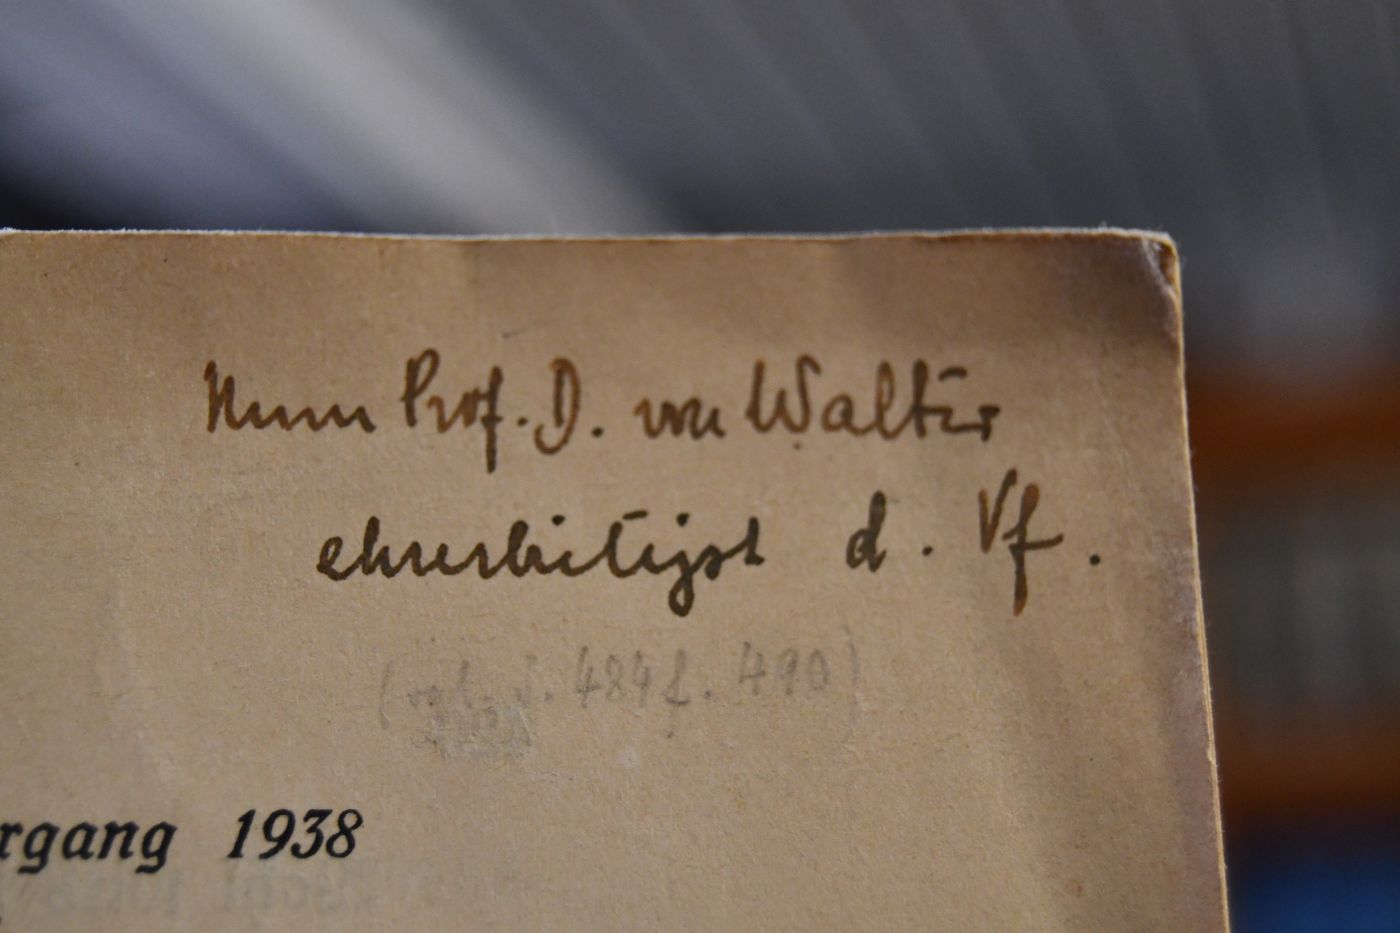 Herrn Prof. D. von Walter
ehrerbietigst d. Vf.
(vgl. S. 484f. 490)
rgang 1938